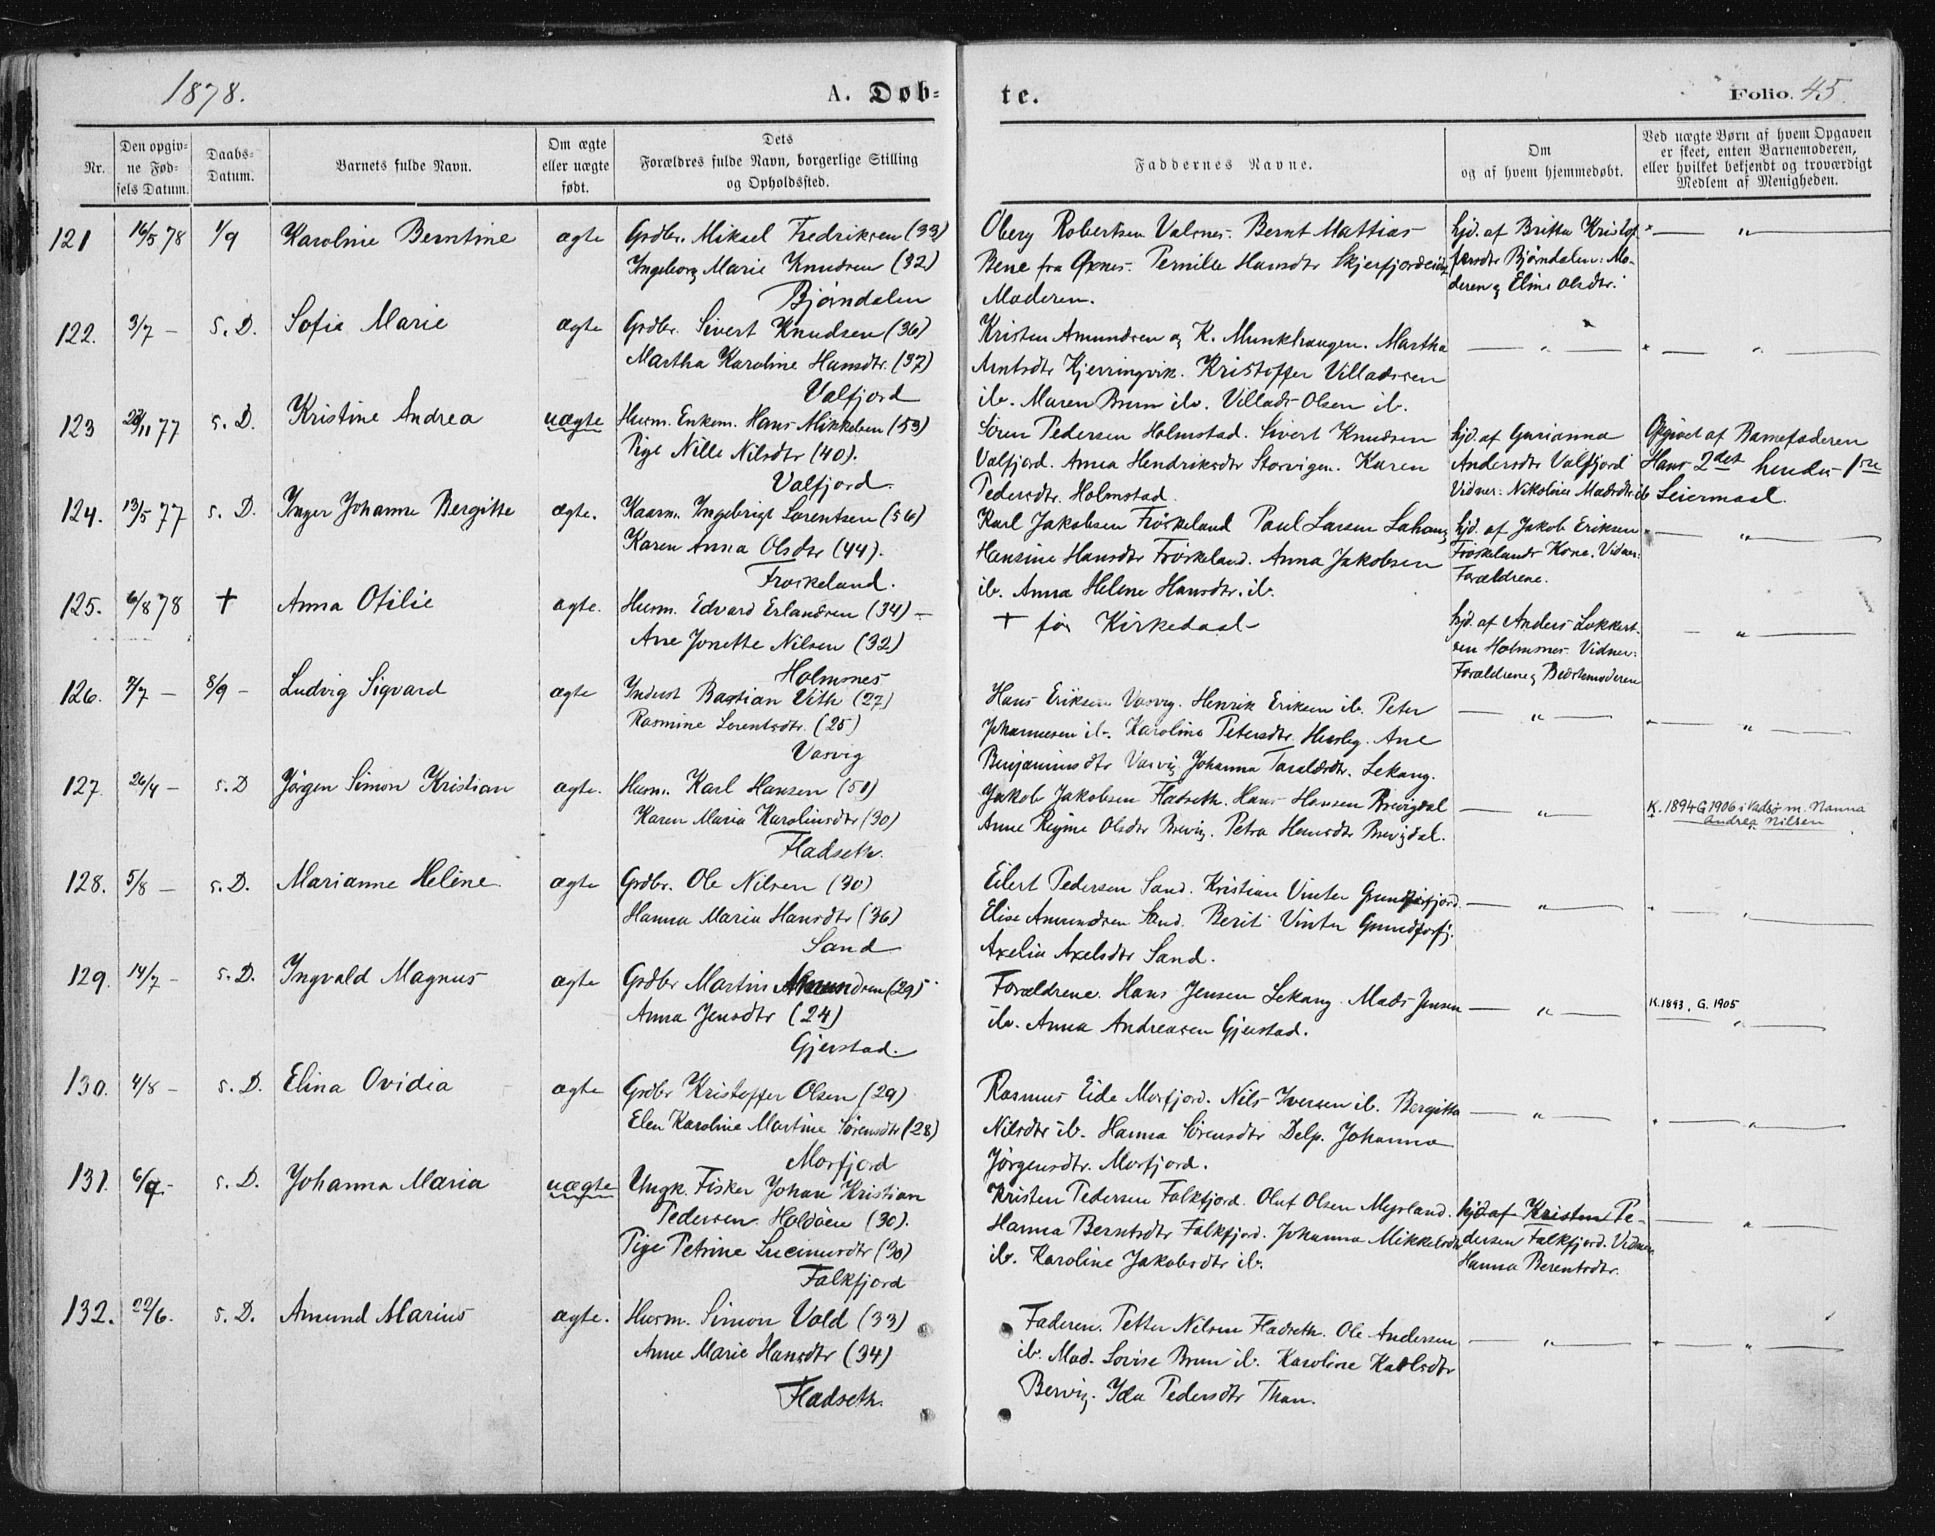 1878.
A. Døb-
te.
Folio. 45.
Nr.
Den opgiv-
ne Fød-
sels Datum.
Daabs-
Datum.
Barnets fulde Navn.
Om ægte
eller uægte
født.
Dets
Forældres fulde Navn, borgerlige Stilling
og Opholdssted.
Faddernes Navne.
Om
og af hvem hjemmedøbt.
Ved uægte Børn af hvem Opgaven
er skeet, enten Barnemoderen,
eller hvilket bekjendt og troværdigt
Medlem af Menigheden.
121 16/5 78 1/9 Karoline Berntine ægte Grdbr. Mikael Fredriksen (33)
Ingeborg Marie Knudsen (32)
Bjørndalen
Oberg Robertsen Valsnes. Bernt Mattias
Bene fra Øxnes. Pernille Hansdtr
Moderen.
hjd. af Britta Kristof
fersdtr Bjørndalen: Mo-
deren og Eline Olsdtr.
122. 3/7 — s. D. Sofie Marie ægte Grdbr. Sivert Knudsen (36)
Martha Karoline Hansdtr. (37)
Valfjord
Kristen Amundsen og K. Munkhaugen. Martha
Arntsdtr Kjerringvik. Kristoffer Villadssen
ib. Maren Brun ib. Villads Olsen ib.
123 28/11 77 s. D. Kristine Andrea uægte Husm. Enkem. Hans Mikkelsen (53)
Pige Nille Nilsdtr (40).
Valfjord.
Søren Pedersen Holmstad. Sivert Knudsen
Valfjord. Anna Hendriksdtr Storvigen. Karen
Pedersdtr. Holmstad.
hjd. af Gurianna
Andersdtr Valfjord
Vidner: Nikoline Madsdtr ib
Opgivet af Barnefaderen
Hans 2det hendes 1ste
Leiermaal.
124. 13/5 77 s. D. Inger Johanne Bergitte ægte. Kaarm. Ingebrigt Lorentsen (56)
Karen Anna Olsdtr (44).
Frøskeland.
Karl Jakobsen Frøskeland Paul Larsen
Hansine Hansdtr Frøskeland. Anna Jakobsen
ib. Anna Helene Hansdtr. ib.
hjd. af Jakob Eriksen
Frøskelands Kone. Vidner:
Forældrene.
125. 6/8 78 † Anna Otilie ægte. Husm. Edvard Erlandsen (34) —
Ane Jonette Nilsen (32)
Holmsnes
† før Kirkedaab
hjd. af Anders Lokkert-
sen Holmsnes. Vidner:
Forældrene & Bedstemoderen
126. 7/7 — 8/9 — Ludvig Sigvard ægte Inderst Bastian Vith (27)
Rasmine Lorentsdtr. (25)
Vasvig
Hans Eriksen Vasvig. Henrik Eriksen ib. Peter
Johannesen ib. Karoline Petersdtr. Ane
Benjaminsdtr Vasvig. Johanna Taraldsdtr. Lekang.
127. 26/4 — s. D Jørgen Simon Kristian ægte. Husm. Karl Hansen (50)
Karen Maria Karolinsdtr (30)
Fladseth.
Jakob Jakobsen Fladseth. Hans Hansen Brevigdal
Anne Regine Olsdtr Brevig. Petra Hansdtr Brevigdal.
K. 1894 G 1906 i Vadsø m. Nanna
Andrea Nilsen
128. 5/8 — s. D. Marianne Heline. ægte Grdbr. Ole Nilsen (30)
Hanna Maria Hansdtr (36)
Sand
Eilert Pedersen Sand. Kristian Vinter Grundforfjord.
Elise Amundsen Sand. Berit Vinter Grundforfj.
Axelia Axelsdtr Sand.
129. 14/7 — s. D. Ingvald Magnus ægte Grdbr Martin Amundsen (29)
Anna Jensdtr (24)
Gjerstad.
Forældrene. Hans Jensen Lekang. Mads Jensen
ib. Anna Andreasen Gjerstad.
K. 1893. G. 1905
130. 4/8 — s. D. Elina Ovidia ægte Grdbr Kristoffer Olsen (29)
Elen Karoline Martine Sørensdtr (28)
Morfjord
Rasmus Eide Morfjord. Nils Iversen ib. Bergitta
Nilsdtr ib. Hanna Sørensdtr Delp. Johanna
Jørgensdtr. Morfjord.
131. 6/9. s. D. Johanna Maria uægte Ungk. Fisker Johan Kristian
Pedersen Holdøen (30).
Pige Petrine Lucinusdtr (30)
Falkfjord
Kristen Pedersen Falkfjord. Oluf Olsen Myrland.
Hanna Berntsdtr Falkfjord. Johanna Mikkelsdtr
ib. Karoline Jakobsdtr ib.
hjd af Kristen Pe-
dersen Falkfjord. Vidner
Hanna Berentsdtr.
132. 22/6. s. D. Amund Marius ægte. Husm. Simon Vold (33)
Anne Marie Hansdtr (34)
Fladseth.
Faderen. Petter Nilsen Fladseth. Ole Andersen
ib. Mad. Lovise Brun ib. Karoline Karlsdtr
Bervig. Ida Pedersdtr Than.